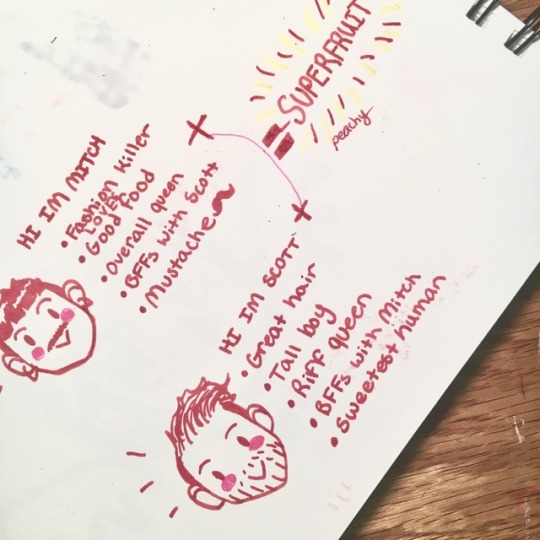 = SUPERFRUIT
peachy
HI IM MITCH
• Fashion Killer
• LOVES
Good food
• Overall queen
• BFFs with Scott
• Mustache
HI IM SCOTT
• Great hair
• Tall boy
• Riff queen
• BFFs with Mitch
• Sweetest human